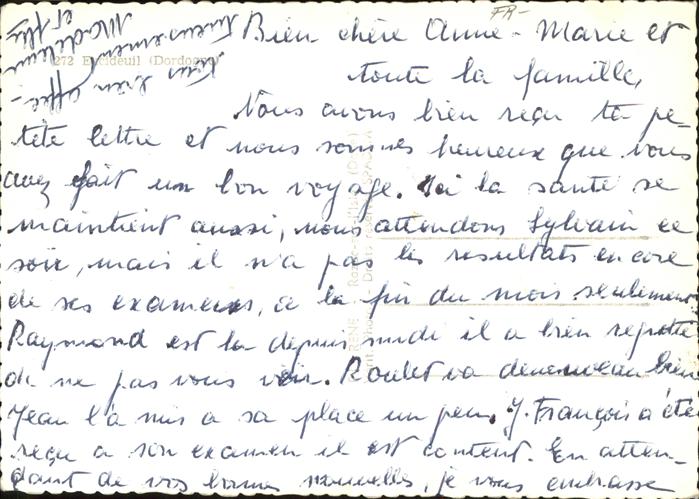 FR-
Bien chère Anne-Marie et
toute la famille,
Nous avons bien reçu ta pe-
tite lettre et nous sommes heureux que vous
avez fait un bon voyage. Ici la santé se
maintient aussi, nous attendons Sylvain ce
soir, mais il n'a pas les resultats encore
de ses examens, a la fin du mois seulement.
Raymond est la depuis midi il a bien
de ne pas vous voir. Roulet va
Jean l'a mis a sa place un peu. J. François a été
reçu a son examen il est content. En atten-
dant de vos bonnes nouvelles, je vous embrasse
tous bien affec-
tueusement
Madeleine
et
272 Excideuil (Dordogne)